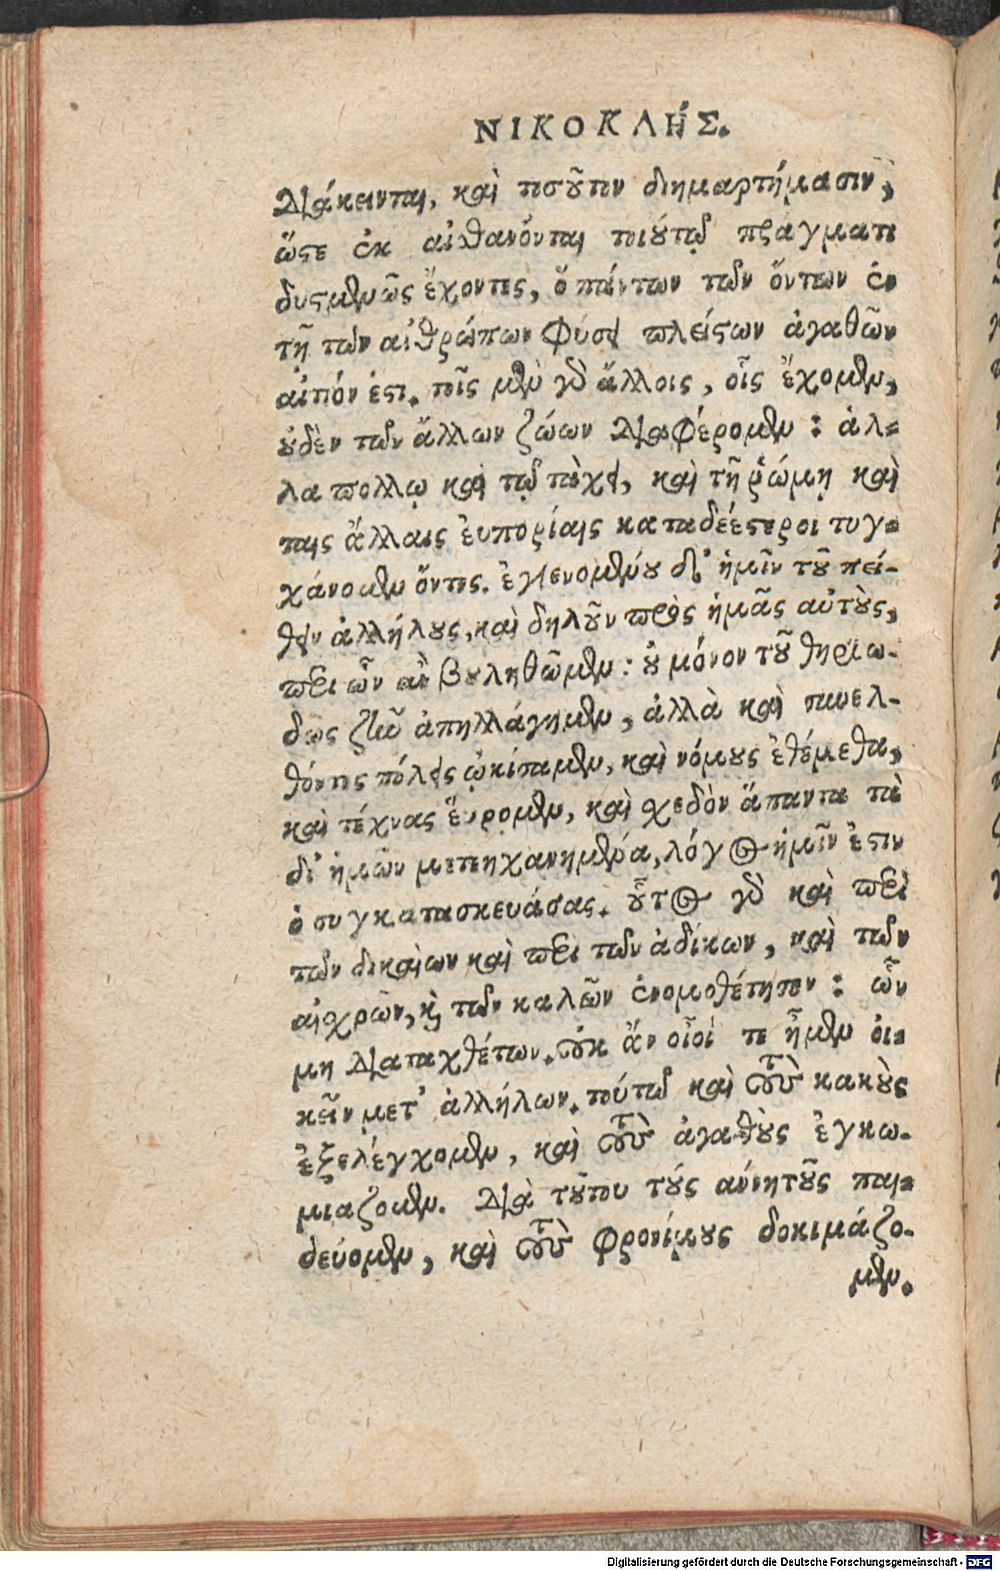 ΝΙΚΟΚΛΉΣ.
διάκεινται, καὶ τοσοῦτον διημαρτήμασιν,
ὥστε ἐκ αἰθανόνται τοιούτῳ πράγματι
δυσμενῶς ἔχοντες, ὃ πάντων τῶν ὄντων ἐν
τῇ τῶν ἀνθρώπων φύσει πλείστων ἀγαθῶν
αἴτιόν ἐστι. τοῖς μὲν γὰρ ἄλλοις, οἷς ἔχομεν,
οὐδὲν τῶν ἄλλων ζώων διαφέρομεν : ἀλ-
λα πολλῳ καὶ τῷ τάχει, καὶ τῇ ῥώμῃ καὶ
ταις ἄλλαις ἐυπορίαις καταδεέστεροι τυγ-
χάνομεν ὄντες. ἐγγενομένου δ' ἡμῖν τοῦ πεί-
θειν ἀλλήλους, καὶ δηλοῦν πρὸς ἡμᾶς αὐτοὺς,
περι ὧν ἂν βουληθῶμεν : οὐ μόνον τοῦ θηριω-
δῶς ζῆν ἀπηλλάγημεν, ἀλλὰ καὶ συνελ-
θόντες πόλεις ᾠκίσαμεν, καὶ νόμους ἐθέμεθα,
καὶ τέχνας ἕυρομεν, καὶ σχεδὸν ἅπαντα τὰ
δι' ἡμῶν μεμηχανημένα, λόγος ἡμῖν ἐστιν
ὁ συγκατασκευάσας. οὗτος γὰρ καὶ περὶ
τῶν δικαίων καὶ περι τῶν ἀδίκων, καὶ τῶν
αἰσχρῶν, καὶ τῶν καλῶν ἐνομοθέτησεν : ὧν
μη διαταχθέντων. οὐκ ἄν οἷοί τε ἦμεν οἰ-
κεῖν μετ' ἀλλήλων. τούτῳ καὶ τοὺς κακοὺς
ἐξελέγχομεν, καὶ τοὺς ἀγαθοὺς ἐγκω-
μιαζομεν. διὰ τούτου τούς ἀνοήτους παι-
δεύομεν, καὶ τοὺς φρονίμους δοκιμάζο-
μεν.
Digitalisierung gefördert durch die Deutsche Forschungsgemeinschaft - DFG